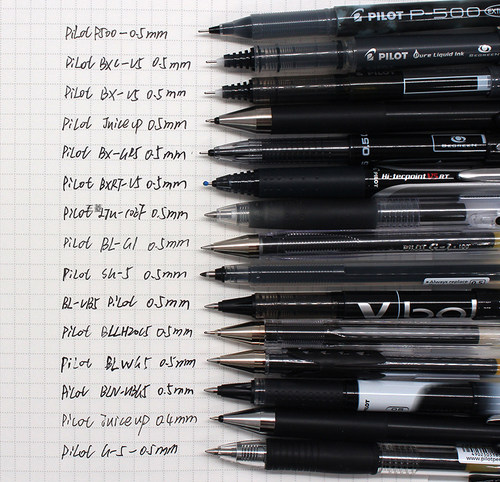 Pilot P500-0.5mm
PILOT P-500
Pilot BXC-V5 0.5mm
PILOT Pure Liquid Ink
Pilot BX-V5 0.5mm
Pilot Juice up 0.5mm
Pilot BX-GR5 0.5mm
0.5
Pilot BXRT-V5 0.5mm
PILOT Hi-tecpoint V5 RT
Pilot 0.5mm
Pilot BL-G1 0.5mm
Pilot 0.5mm
Always replace
BL-VB5 Pilot 0.5mm
Pilot BLLH20C5 0.5mm
Pilot BLWG5 0.5mm
Pilot 0.5mm
PILOT
Pilot Juice up 0.4mm
Pilot G-5-0.5mm